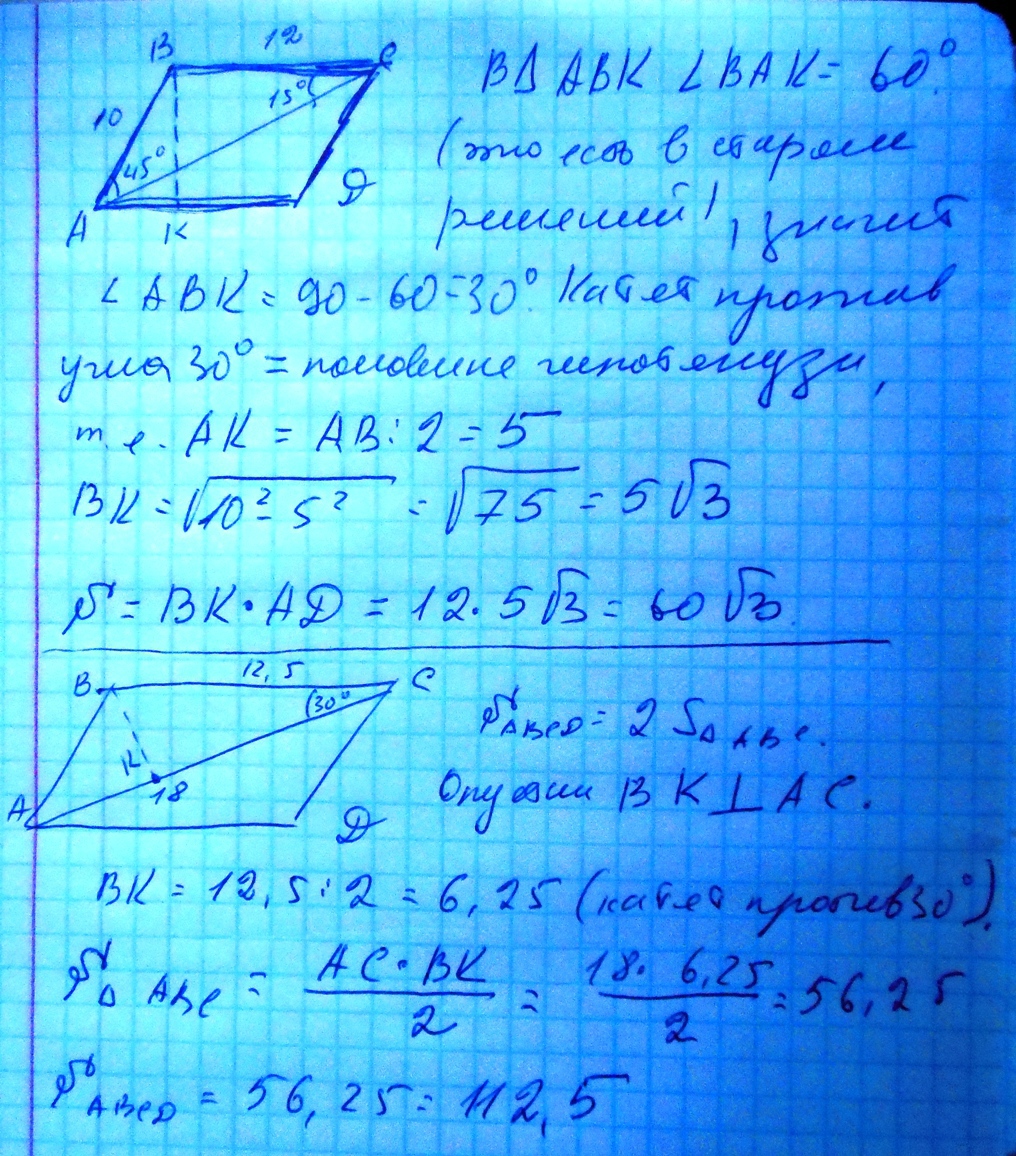 B 12 C
10 15°
45°
A K D
В Δ ABK ∠BAK = 60°.
(это есть в старом
решении), значит
∠ ABK = 90 - 60 = 30° Катет против
угла 30° = половине гипотенузы,
т.е. AK = AB : 2 = 5
BK = √10² - 5² = √75 = 5√3
S = BK · AD = 12 · 5√3 = 60√3.
B 12,5 C
30°
K
18
A D
S ABCD = 2 S Δ ABC.
Опустим BK ⊥ AC.
BK = 12,5 : 2 = 6,25 (катет против 30°).
S Δ ABC = AC · BK / 2 = 18 · 6,25 / 2 = 56,25
S ABCD = 56,25 = 112,5